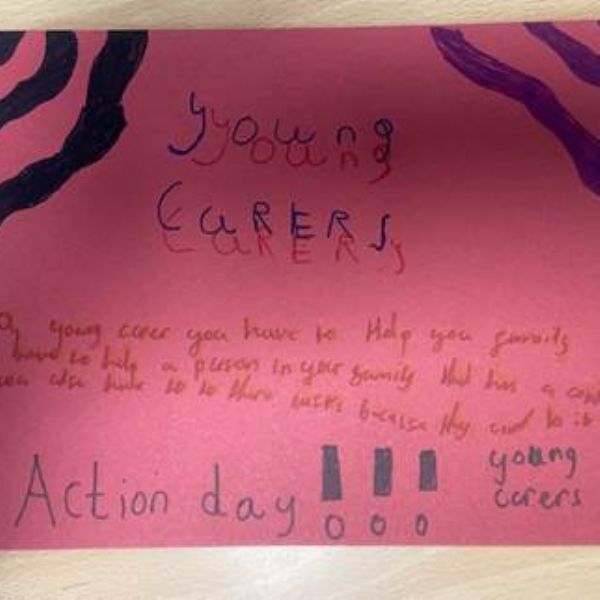 young
CaRERS
young carer you have to Help you family
have to help a person in your family that has a
you also have to do there because they to it
Action day !!! young
carers